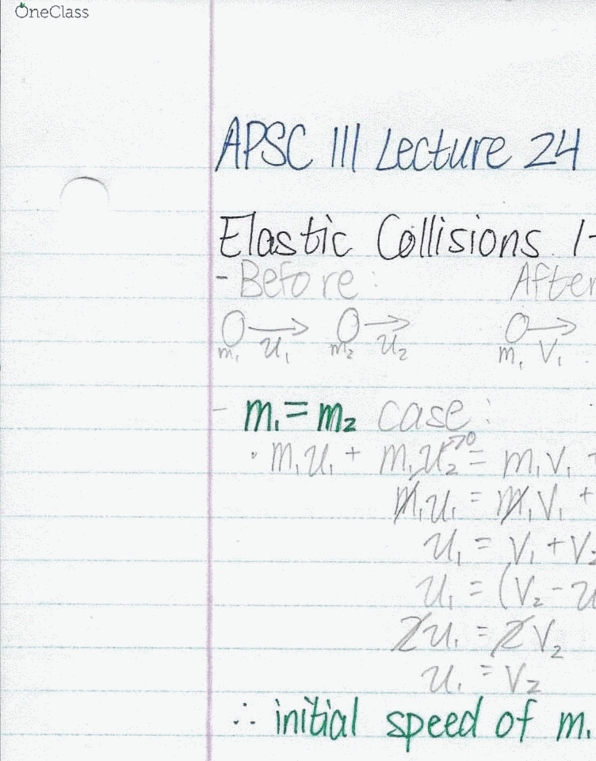 OneClass
APSC 111 Lecture 24
Elastic Collisions 1-
- Before: After
m₁ u₁ m₂ u₂ m₁ v₁
- m₁ = m₂ case:
· m₁u₁ + m₁u₂→0 = m₁v₁ +
m₁u₁ = m₁v₁ +
u₁ = v₁ + v₂
u₁ = (v₂ - u
2u₁ = 2v₂
u₁ = v₂
∴ initial speed of m₁